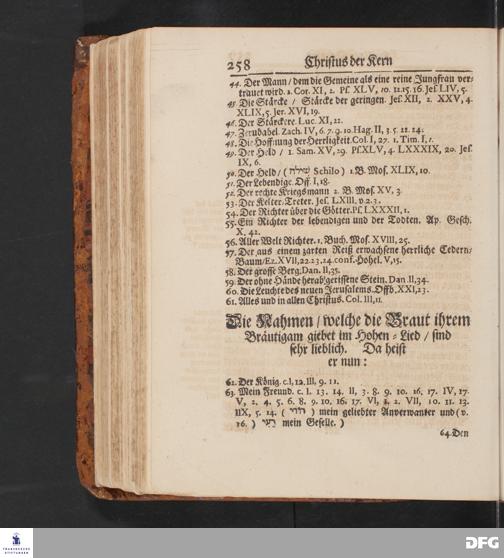 258 Christus der Kern
44. Der Mann / dem die Gemeine als eine reine Jungfrau ver-
trauet wird. 2. Cor. XI, 2. Ps. XLV, 10. 11. 15. 16. Jes. LIV, 5.
45. Die Stärcke / Stärcke der geringen. Jes. XII, 2. XXV, 4.
XLIX, 5. Jer. XVI, 19.
46. Der Stärckere. Luc. XI, 22.
47. Zerubabel. Zach. IV, 6. 7. 9. 10. Hag. II, 3. 5. 22. 24.
48. Die Hoffnung der Herrligkeit. Col. I, 27. 1. Tim. I, 1.
49. Der Held / 1. Sam. XV, 29. Ps. XLV, 4. LXXXIX, 20. Jes.
IX, 6.
50. Der Held / ( שילה Schilo ) 1. B. Mos. XLIX, 10.
51. Der Lebendige. Off. I, 18.
52. Der rechte Kriegsmann 2. B. Mos. XV, 3.
53. Der Kelter-Treter. Jes. LXIII, v. 2. 3.
54. Der Richter über die Götter. Ps. LXXXII, 1.
55. Ein Richter der lebendigen und der Todten. Ap. Gesch.
X, 42.
56. Aller Welt Richter. 1. Buch. Mos. XVIII, 25.
57. Der aus einem zarten Reiß erwachsene herrliche Cedern-
Baum / Ez. XVII, 22. 23. 24. conf. Hohel. V, 15.
58. Der grosse Berg. Dan. II, 35.
59. Der ohne Hände herab gerissene Stein. Dan. II, 34.
60. Die Leuchte des neuen Jerusalems. Offb. XXI, 23.
61. Alles und in allen Christus. Col. III, 11.
Die Nahmen / welche die Braut ihrem
Bräutigam giebet im Hohen-Lied / sind
sehr lieblich. Da heist
er nun:
62. Der König. c. I, 12. III, 9. 11.
63. Mein Freund. c. I. 13. 14. II, 3. 8. 9. 10. 16. 17. IV, 17.
V, 2. 4. 5. 6. 8. 9. 10. 16. 17. VI, 1. 2. VII, 10. 11. 13.
IIX, 5. 14. ( דודי ) mein geliebter Anverwandter und (v.
16. ) רעי mein Geselle. )
64. Den
FRANCKESCHE
STIFTUNGEN
DFG